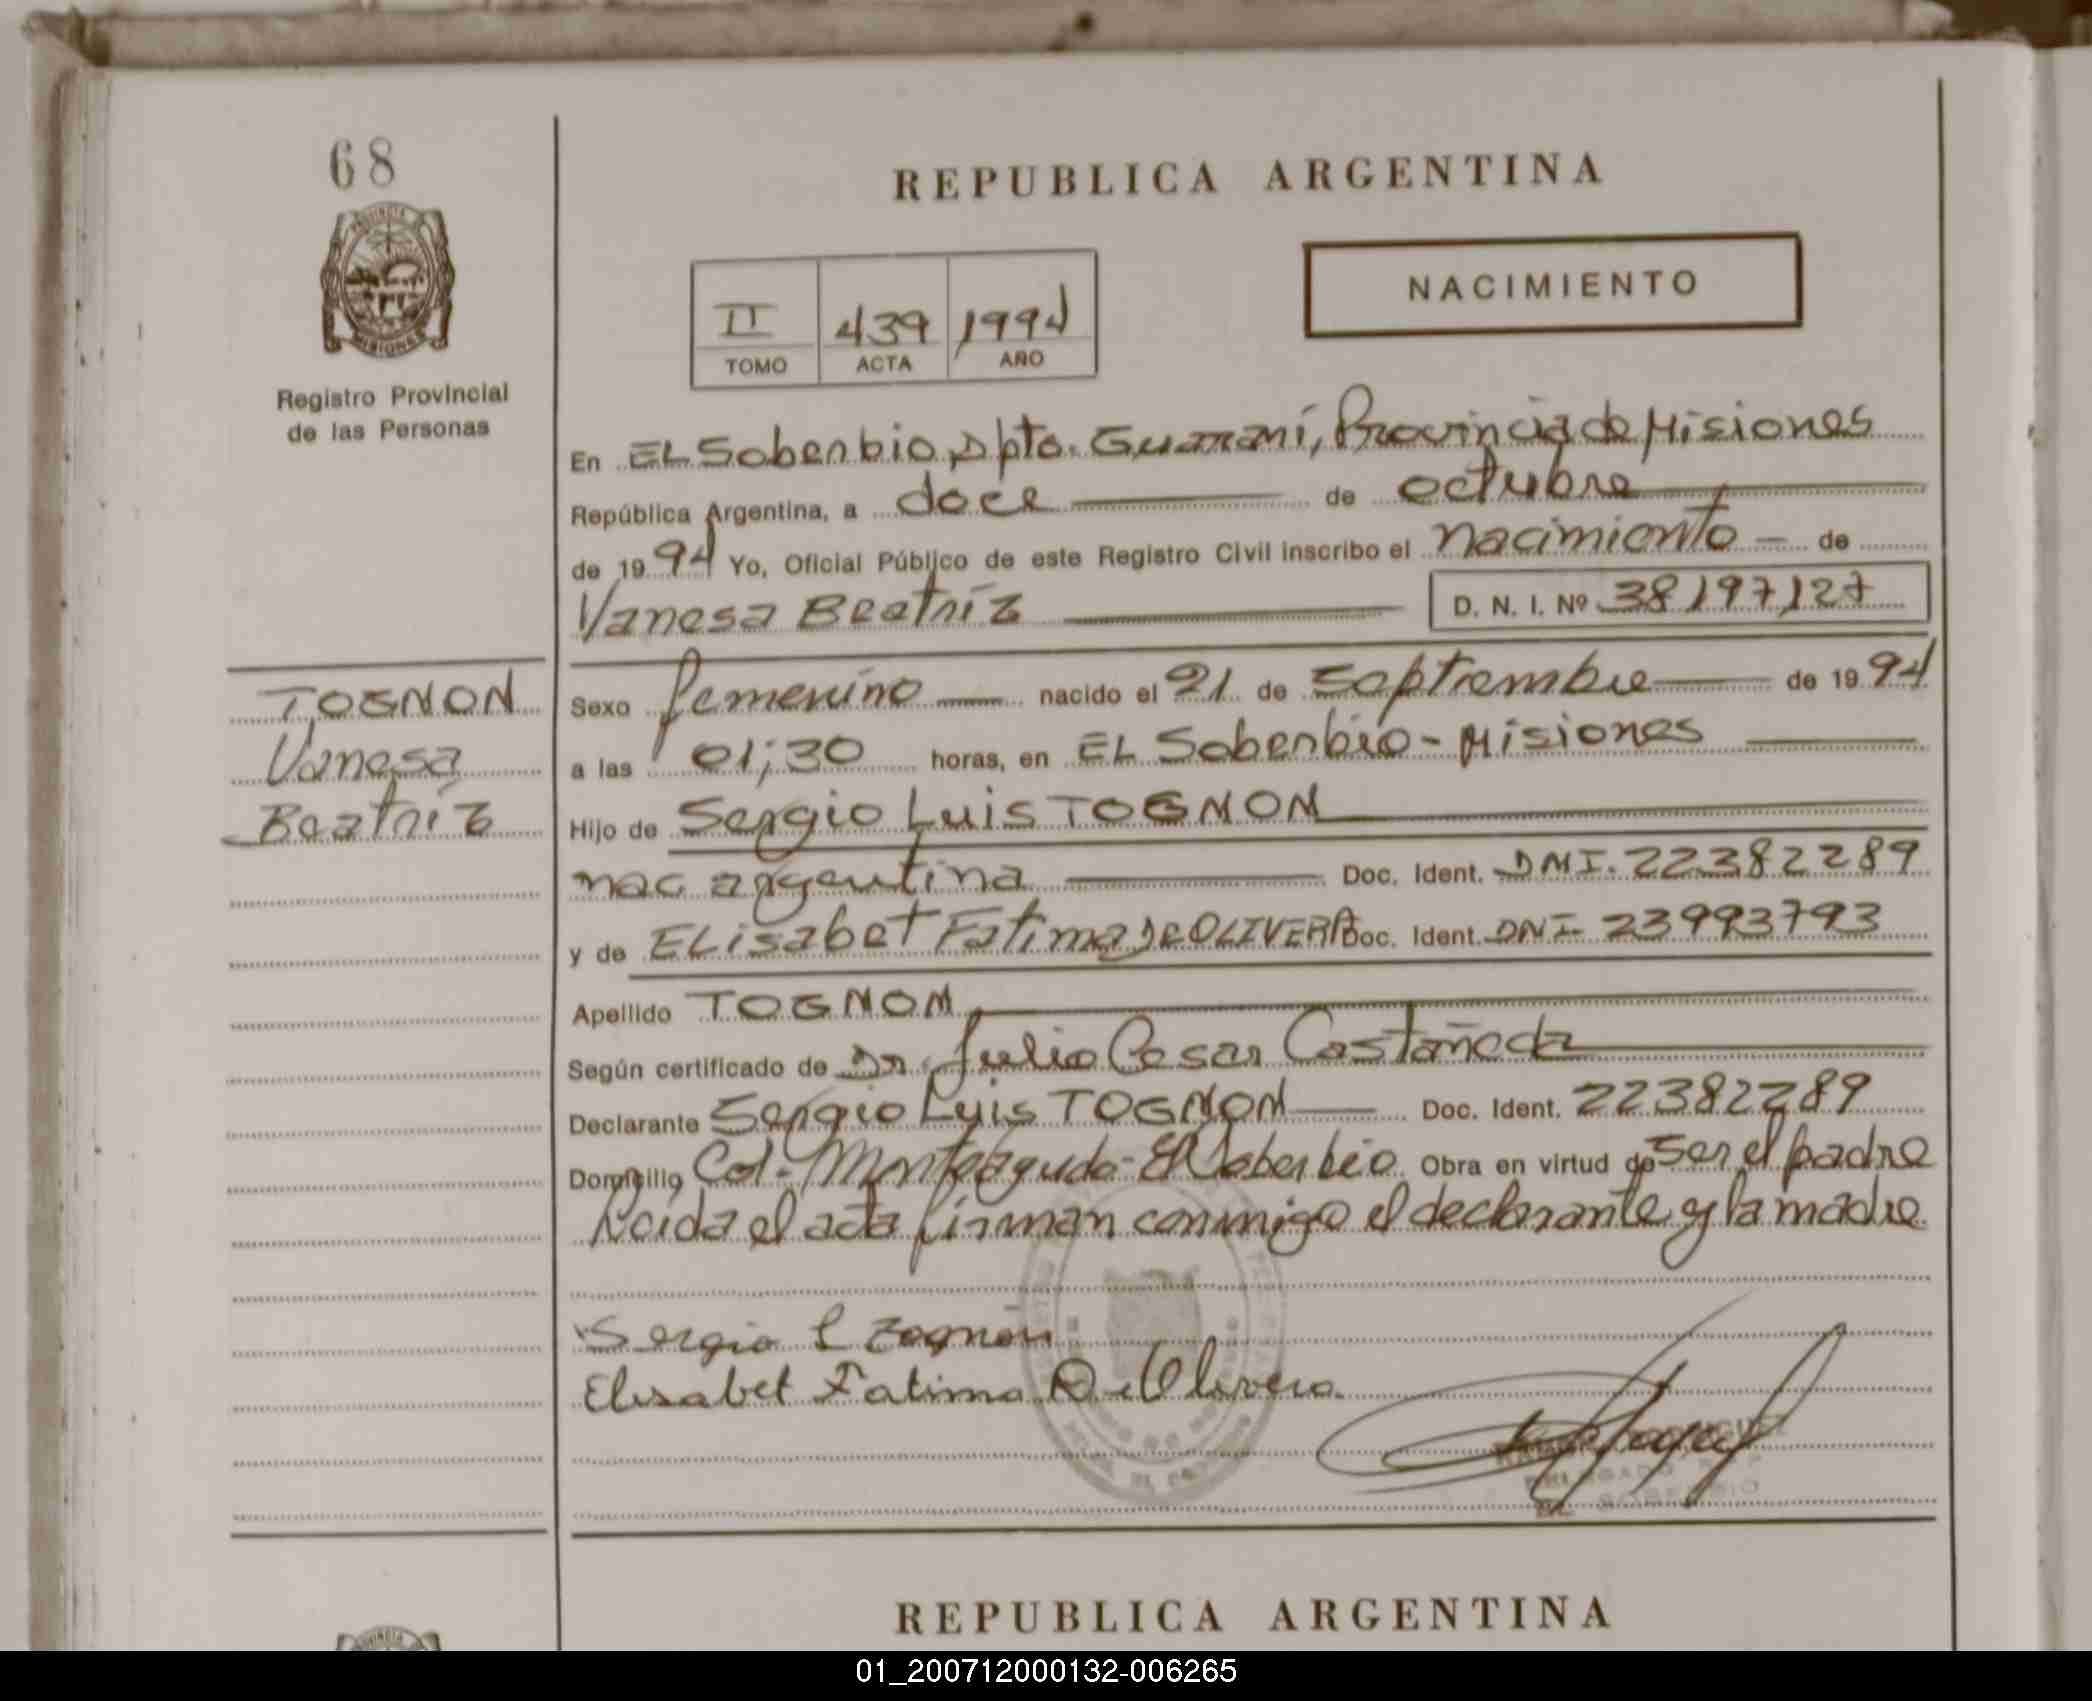 68
PROVINCIA
MISIONES
Registro Provincial
de las Personas
REPUBLICA ARGENTINA
NACIMIENTO
II 439 1994
TOMO ACTA AÑO
En EL Soberbio, Dpto. Guaraní, Provincia de Misiones
República Argentina, a doce de octubre
de 1994 Yo, Oficial Público de este Registro Civil inscribo el nacimiento de
Vanesa Beatríz D. N. I. Nº 38197127
TOGNON
Vanesa
Beatríz
Sexo femenino nacido el 21 de Septiembre de 1994
a las 01;30 horas, en EL Soberbio - Misiones
Hijo de Sergio Luis TOGNON
nac argentina Doc. Ident. DNI. 22382289
y de ELisabet Fatima De OLIVERA Doc. Ident. DNI 23993793
Apellido TOGNON
Según certificado de Dr. Julio Cesar Castañeda
Declarante Sergio Luis TOGNON Doc. Ident. 22382289
Domicilio Col. Monteagudo - El Soberbio Obra en virtud de Ser el padre
Leida el acta firman conmigo el declarante y la madre
Sergio L Tognon
Elisabet Fatima De Olivera
DELEGADO
EL SOBERBIO
REPUBLICA ARGENTINA
PROVINCIA
01_200712000132-006265